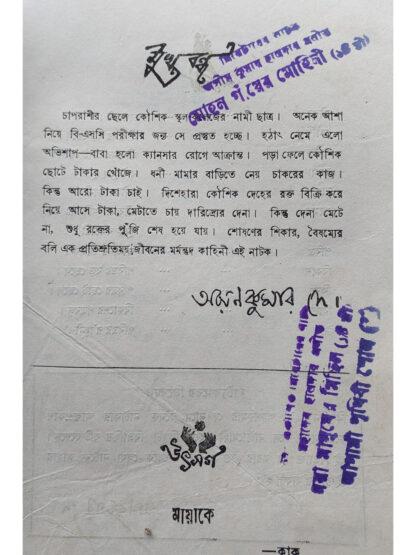 মুখবন্ধ
মোহন গাঁয়ের মোহিনী (১৪টী)
চাপরাশীর ছেলে কৌশিক স্কুল-কলেজের নামী ছাত্র। অনেক আশা
নিয়ে বি-এসসি পরীক্ষার জন্য সে প্রস্তুত হচ্ছে। হঠাৎ নেমে এলো
অভিশাপ—বাবা হলো ক্যানসার রোগে আক্রান্ত। পড়া ফেলে কৌশিক
ছোটে টাকার খোঁজে। ধনী মামার বাড়িতে নেয় চাকরের কাজ।
কিন্তু আরো টাকা চাই। দিশেহারা কৌশিক দেহের রক্ত বিক্রি করে
নিয়ে আসে টাকা, মেটাতে চায় দারিদ্রোর দেনা। কিন্তু দেনা মেটে
না, শুধু রক্তের পুঁজি শেষ হয়ে যায়। শোষণের শিকার, বৈষম্যের
বলি এক প্রতিশ্রুতিময় জীবনের মর্মন্তদ কাহিনী এই নাটক।
কুমার দে।
মরা মানুষের মিছিল (১৪টী)
আগামী পৃথিবী শোন
উৎসর্গ
মায়াকে
—কাকু